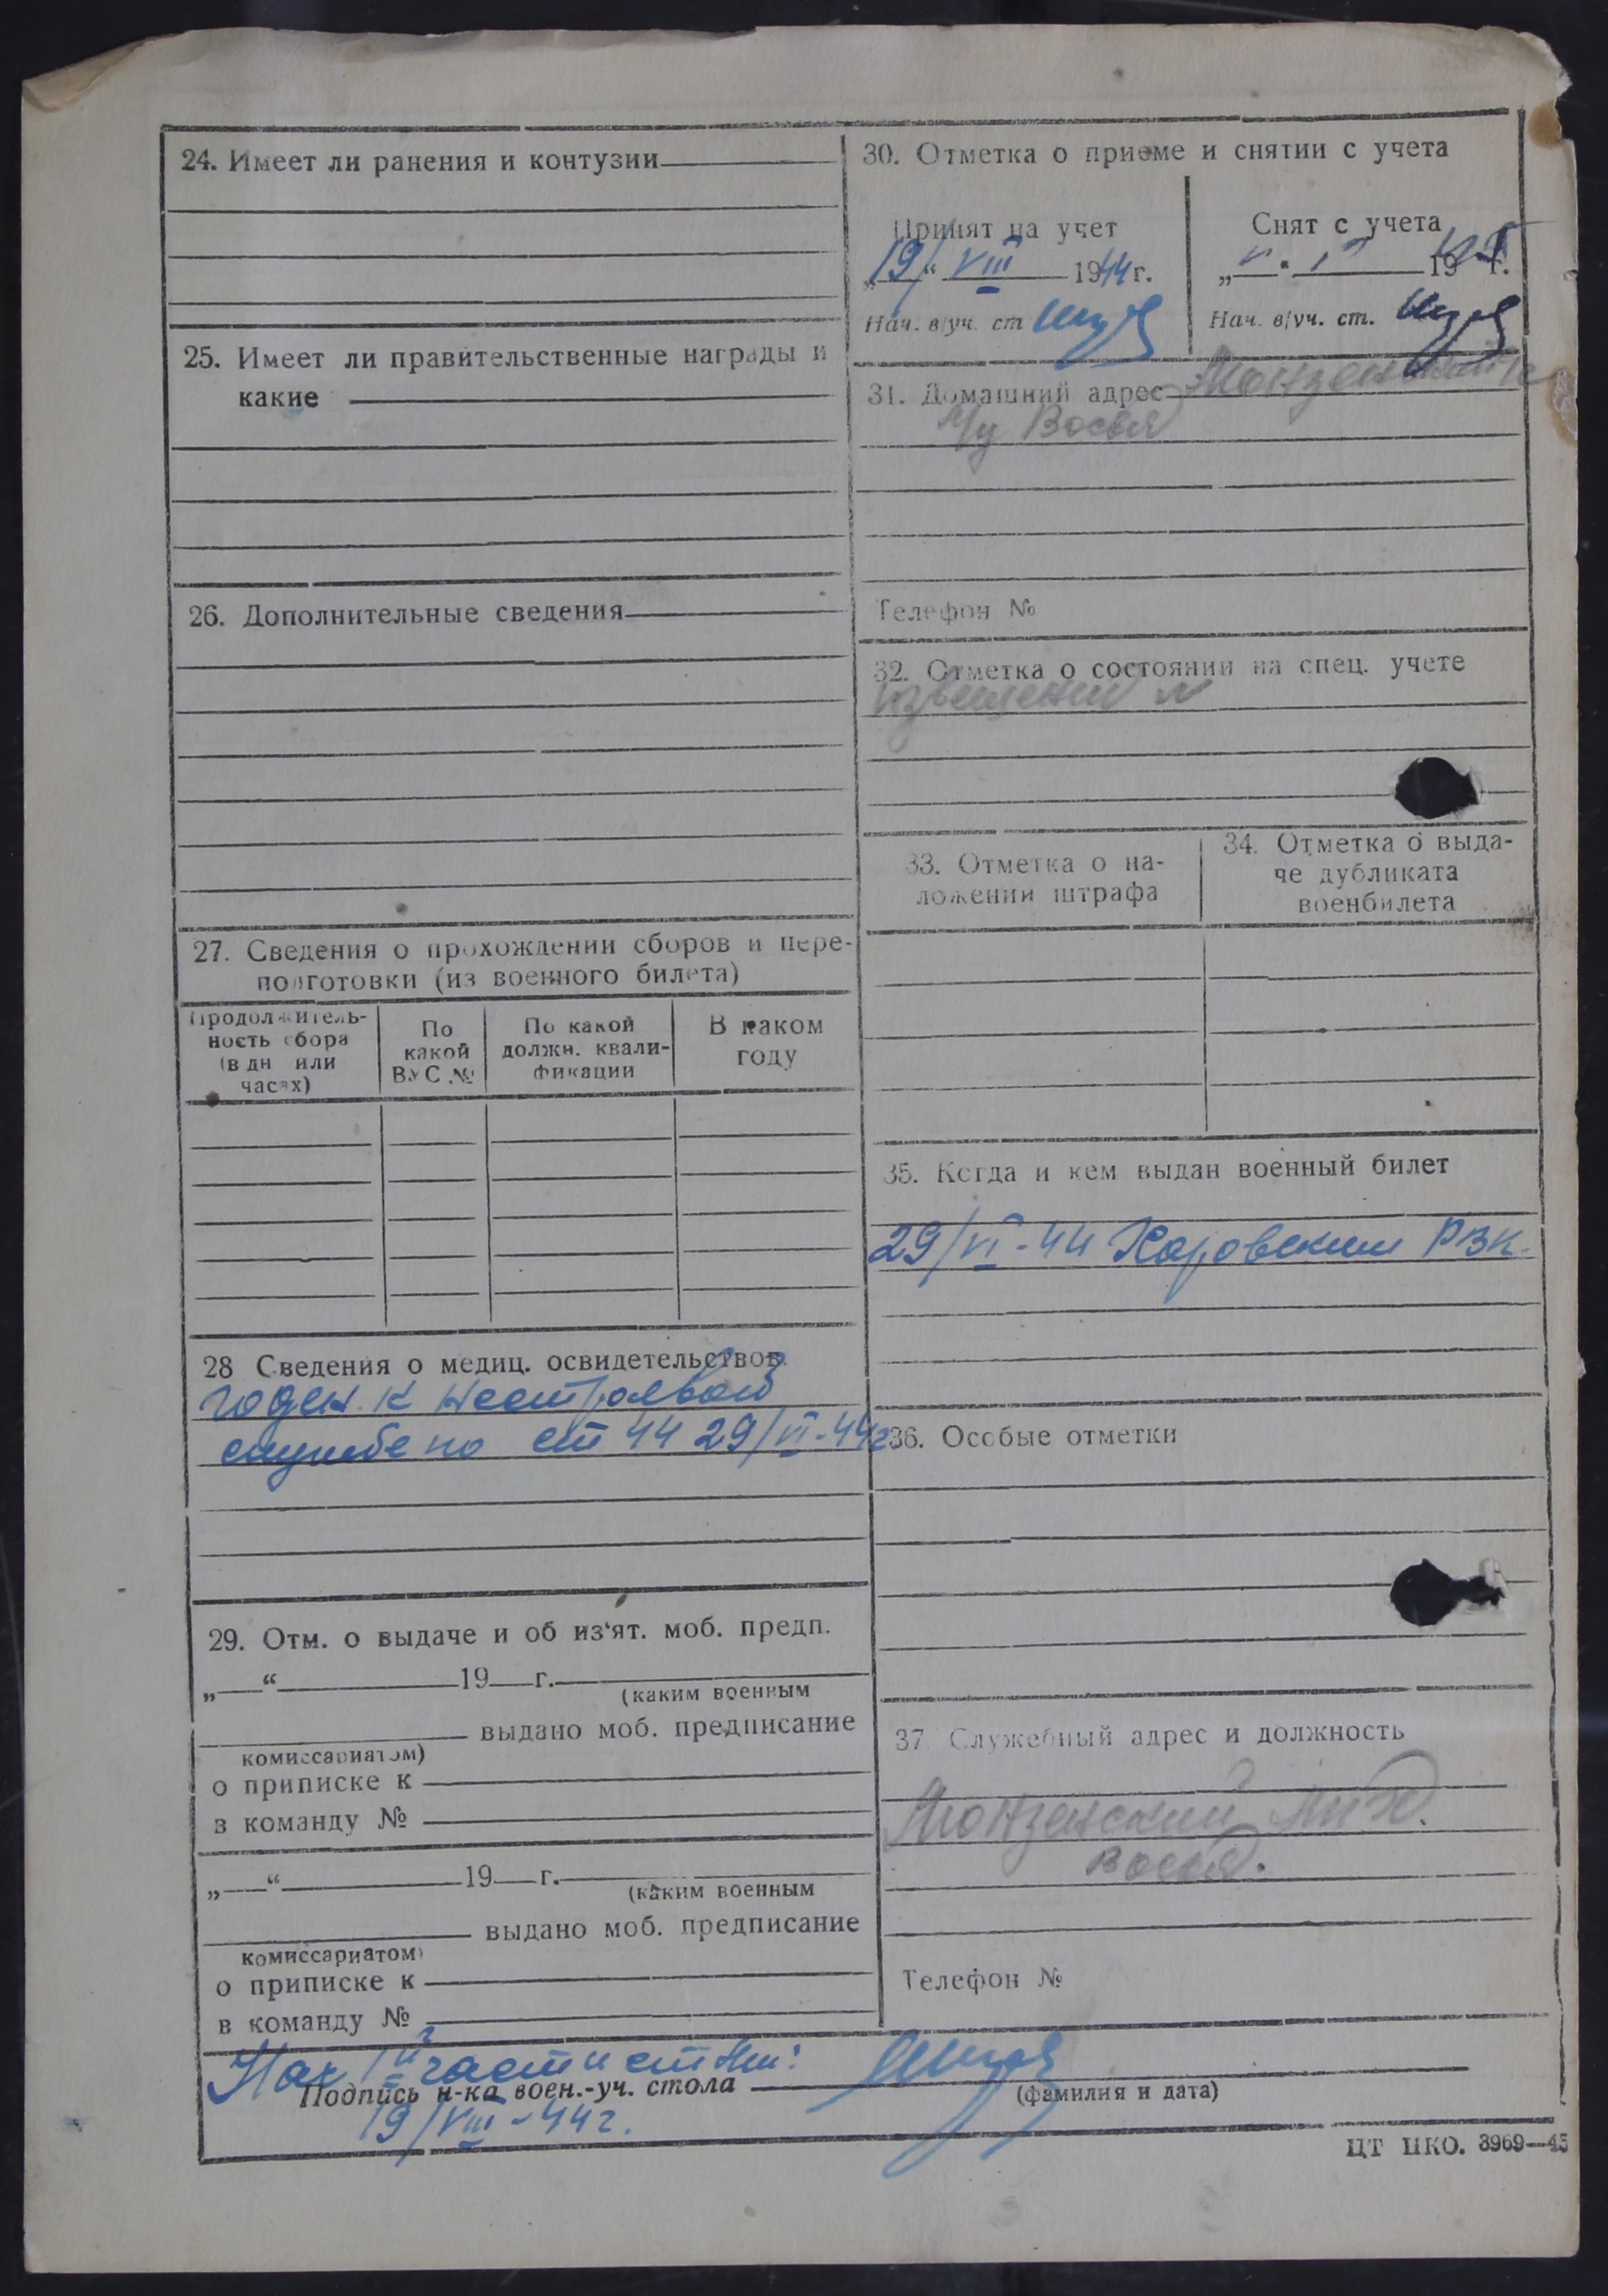 24. Имеет ли ранения и контузии
25. Имеет ли правительственные награды и
какие
26. Дополнительные сведения
27. Сведения о прохождении сборов и пере-
подготовки (из военного билета)
Продолжитель-
ность сбора
(в дн или
часах)
По
какой
ВУС №
По какой
должн. квали-
фикации
В каком
году
28 Сведения о медиц. освидетельствов.
годен. к нестроевой
службе по ст 44 29/VI-44г
29. Отм. о выдаче и об из'ят. моб. предп.
„ “ 19 г.
(каким военным
выдано моб. предписание
комиссариатом)
о приписке к
в команду №
„ “ 19 г.
(каким военным
выдано моб. предписание
комиссариатом)
о приписке к
в команду №
30. Отметка о приеме и снятии с учета
Принят на учет
„19/“ VIII 1944 г.
Нач. в/уч. ст
Снят с учета
„ “ 19 г.
Нач. в/уч. ст.
31. Домашний адрес
Телефон №
32. Отметка о состоянии на спец. учете
извещении №
33. Отметка о на-
ложении штрафа
34. Отметка о выда-
че дубликата
военбилета
35. Когда и кем выдан военный билет
29/VI-44 Харовским РВК.
36. Особые отметки
37 Служебный адрес и должность
Монзенский
Телефон №
Нач части
Подпись н-ка воен.-уч. стола
(фамилия и дата)
19/VIII-44г.
ЦТ НКО. 3969—45